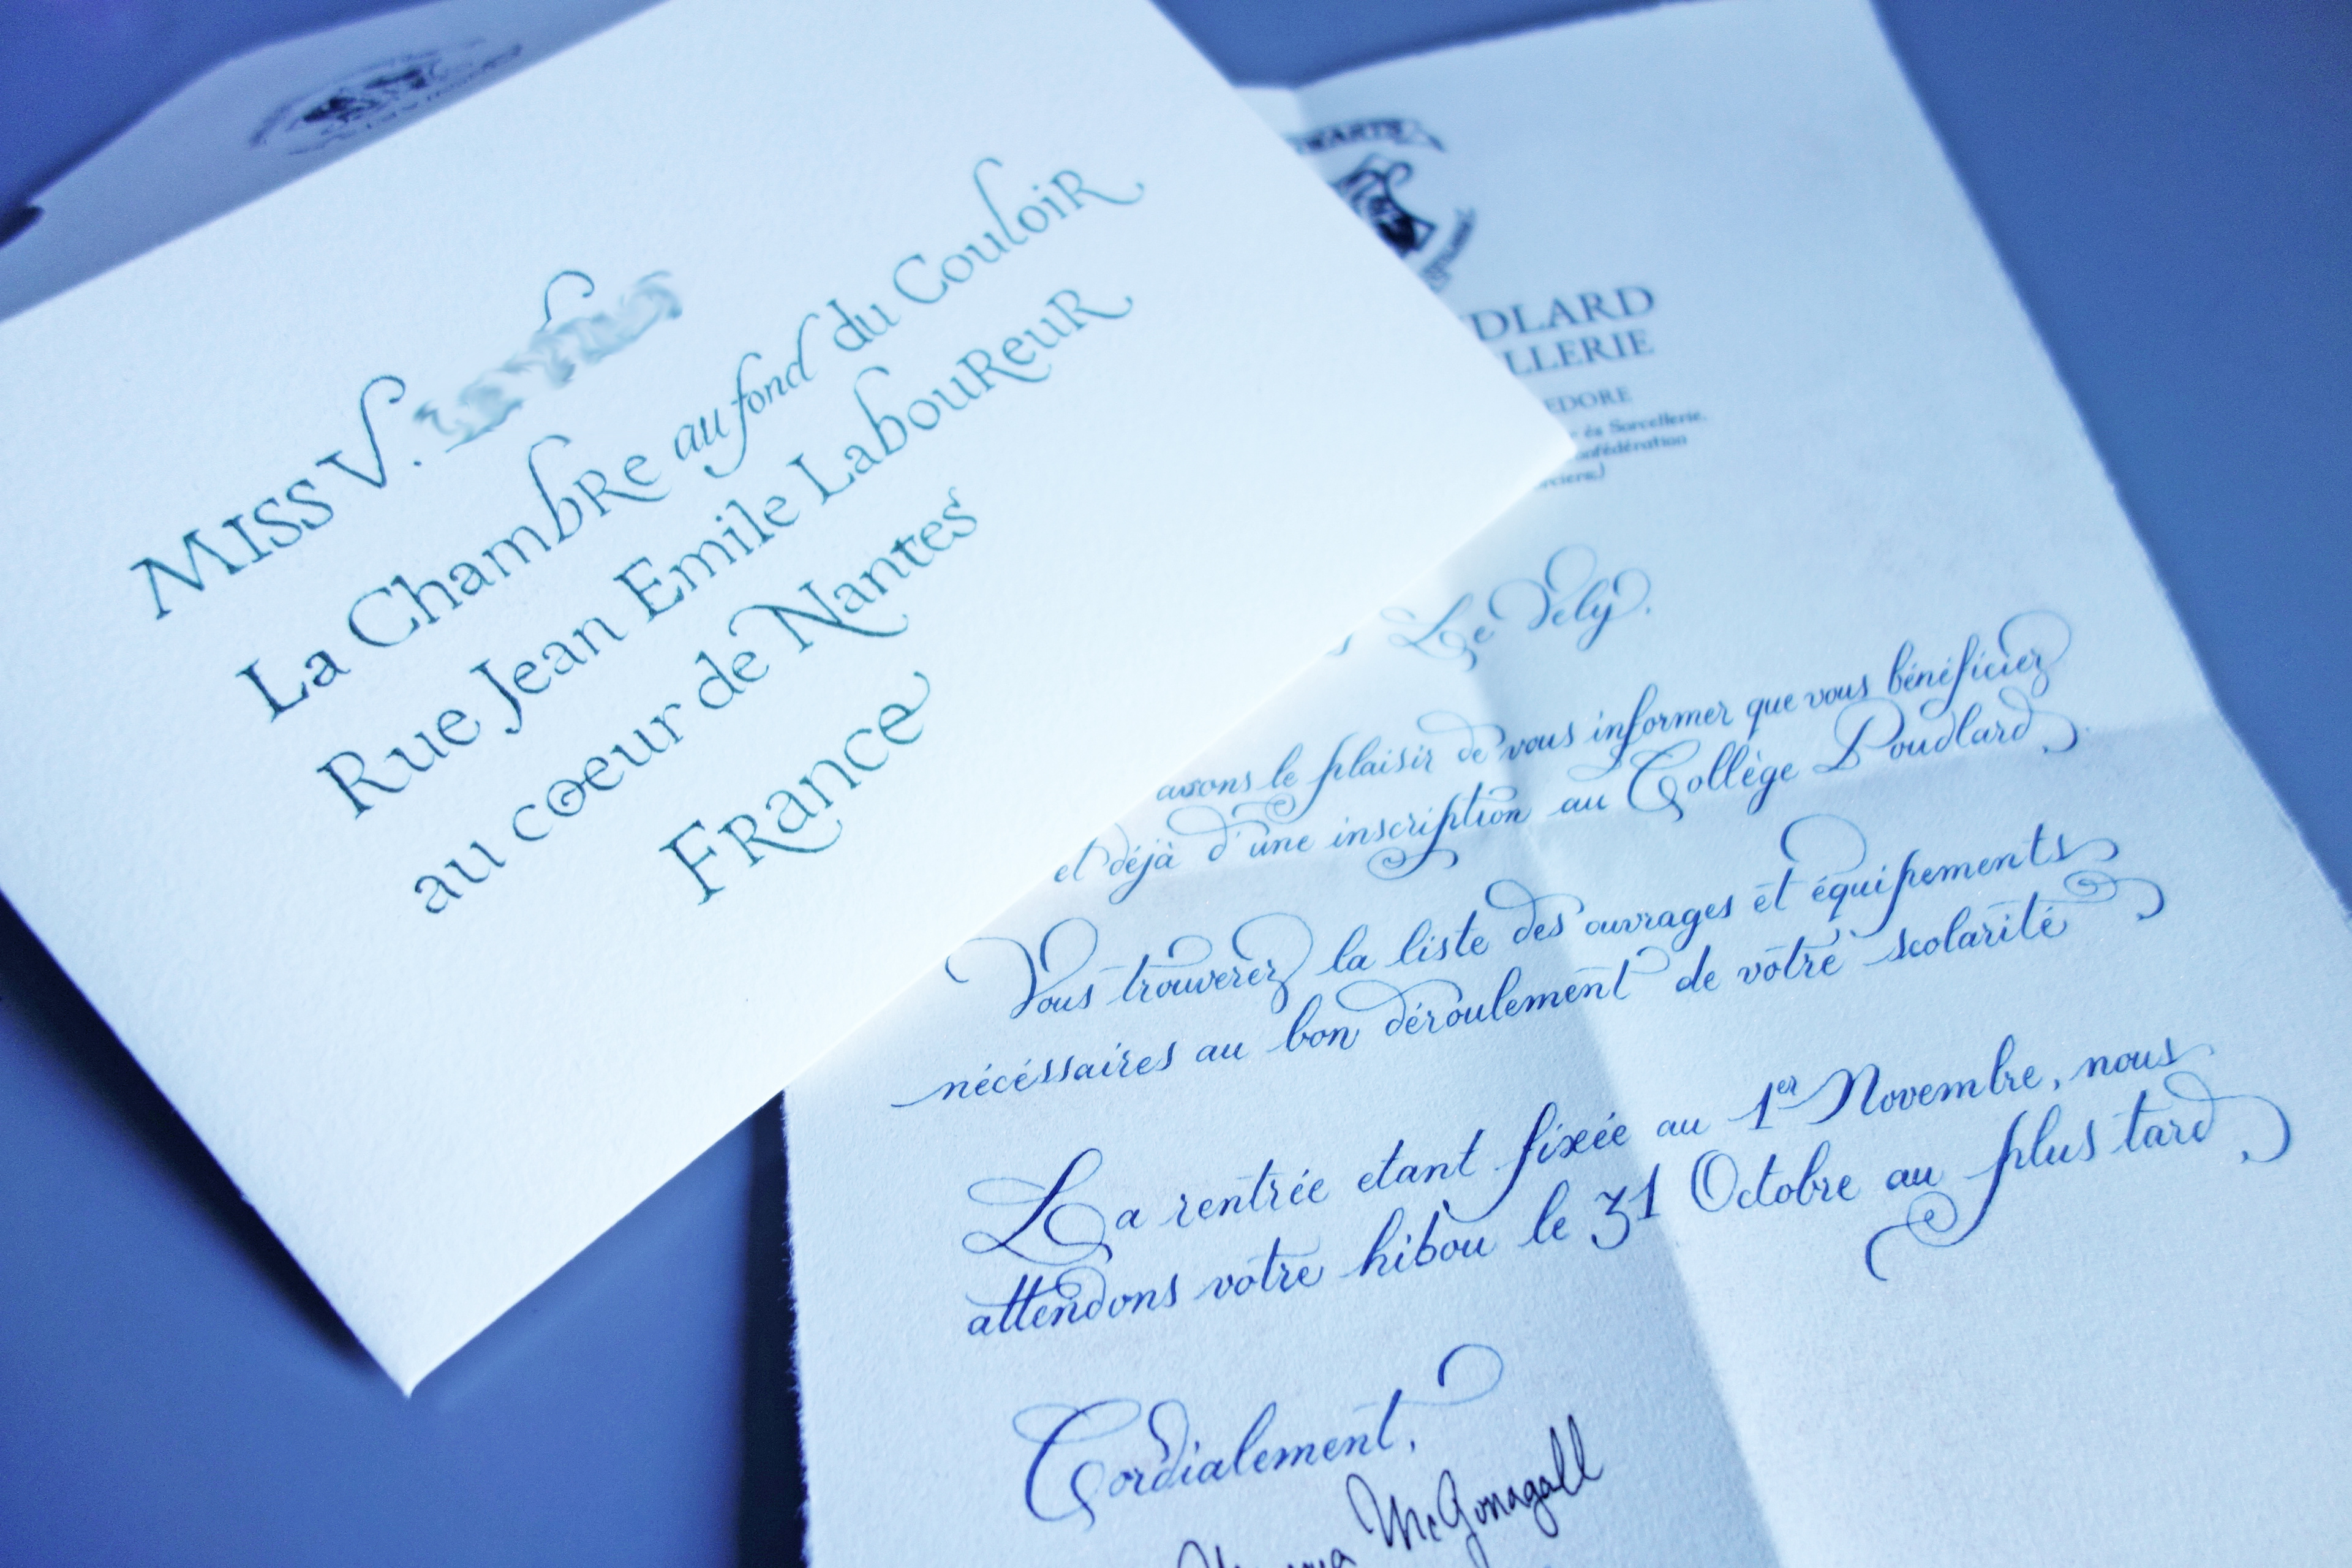 Miss V.
La Chambre au fond du Couloir
Rue Jean Emile Laboureur
au coeur de Nantes
France
DLARD
LLERIE
EDORE
ès Sorcellerie,
Le Dely,
avons le plaisir de vous informer que vous bénéficiez
et déjà d'une inscription au Collège Poudlard,
Vous trouverez la liste des ouvrages et équipements
nécéssaires au bon déroulement de votre scolarité
La rentrée etant fixée au 1er Novembre, nous
attendons votre hibou le 31 Octobre au plus tard,
Cordialement,
McGonagall